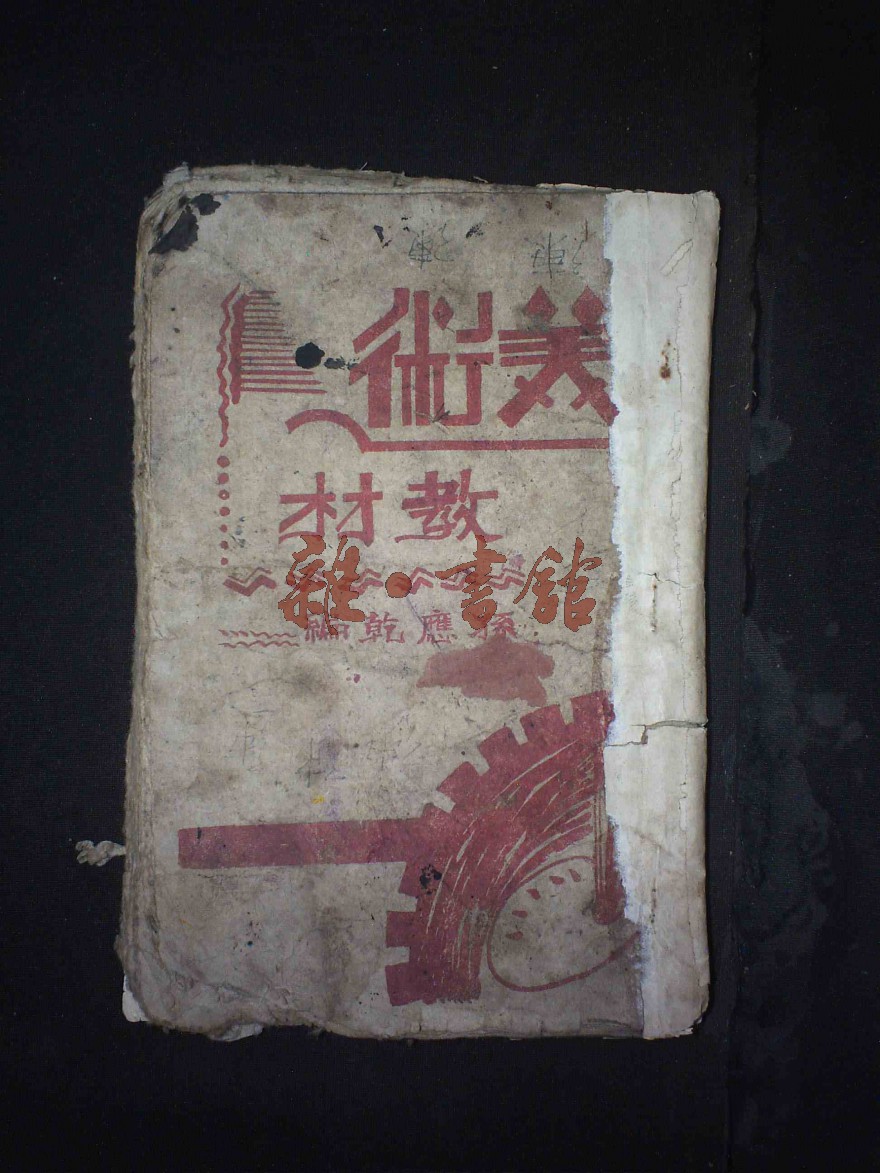 美術
教材
雜·書館
孫應乾編